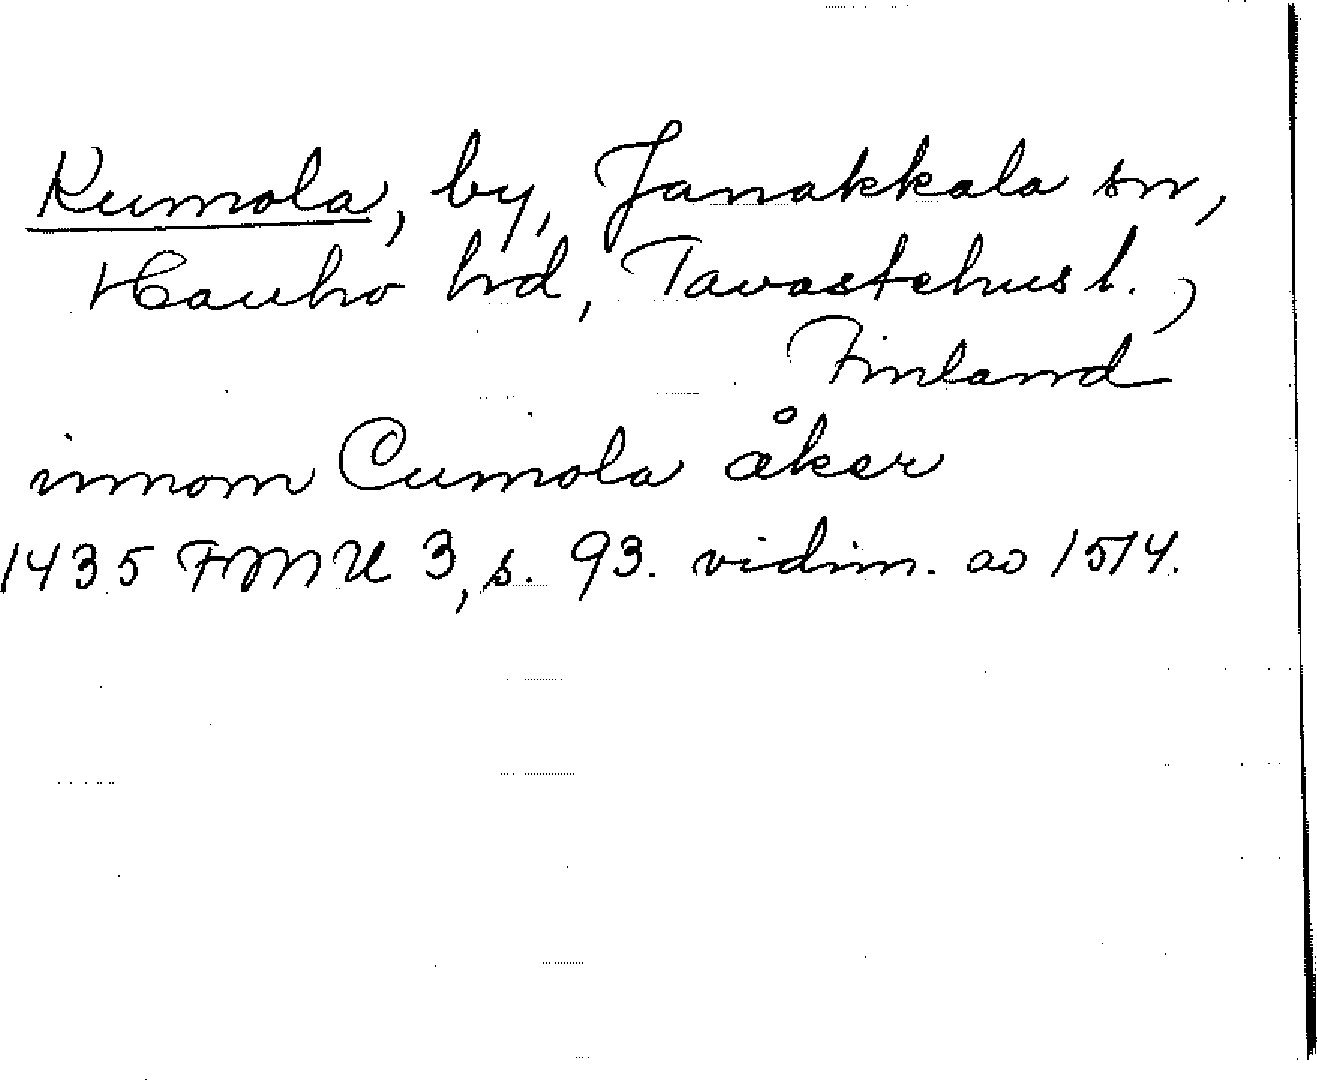 Kumola, by, Janakkala sn,
Hauho hd, Tavastehus l.,
Finland
innom Cumola åker
1435 FMU 3, s. 93. vidim. av 1514.